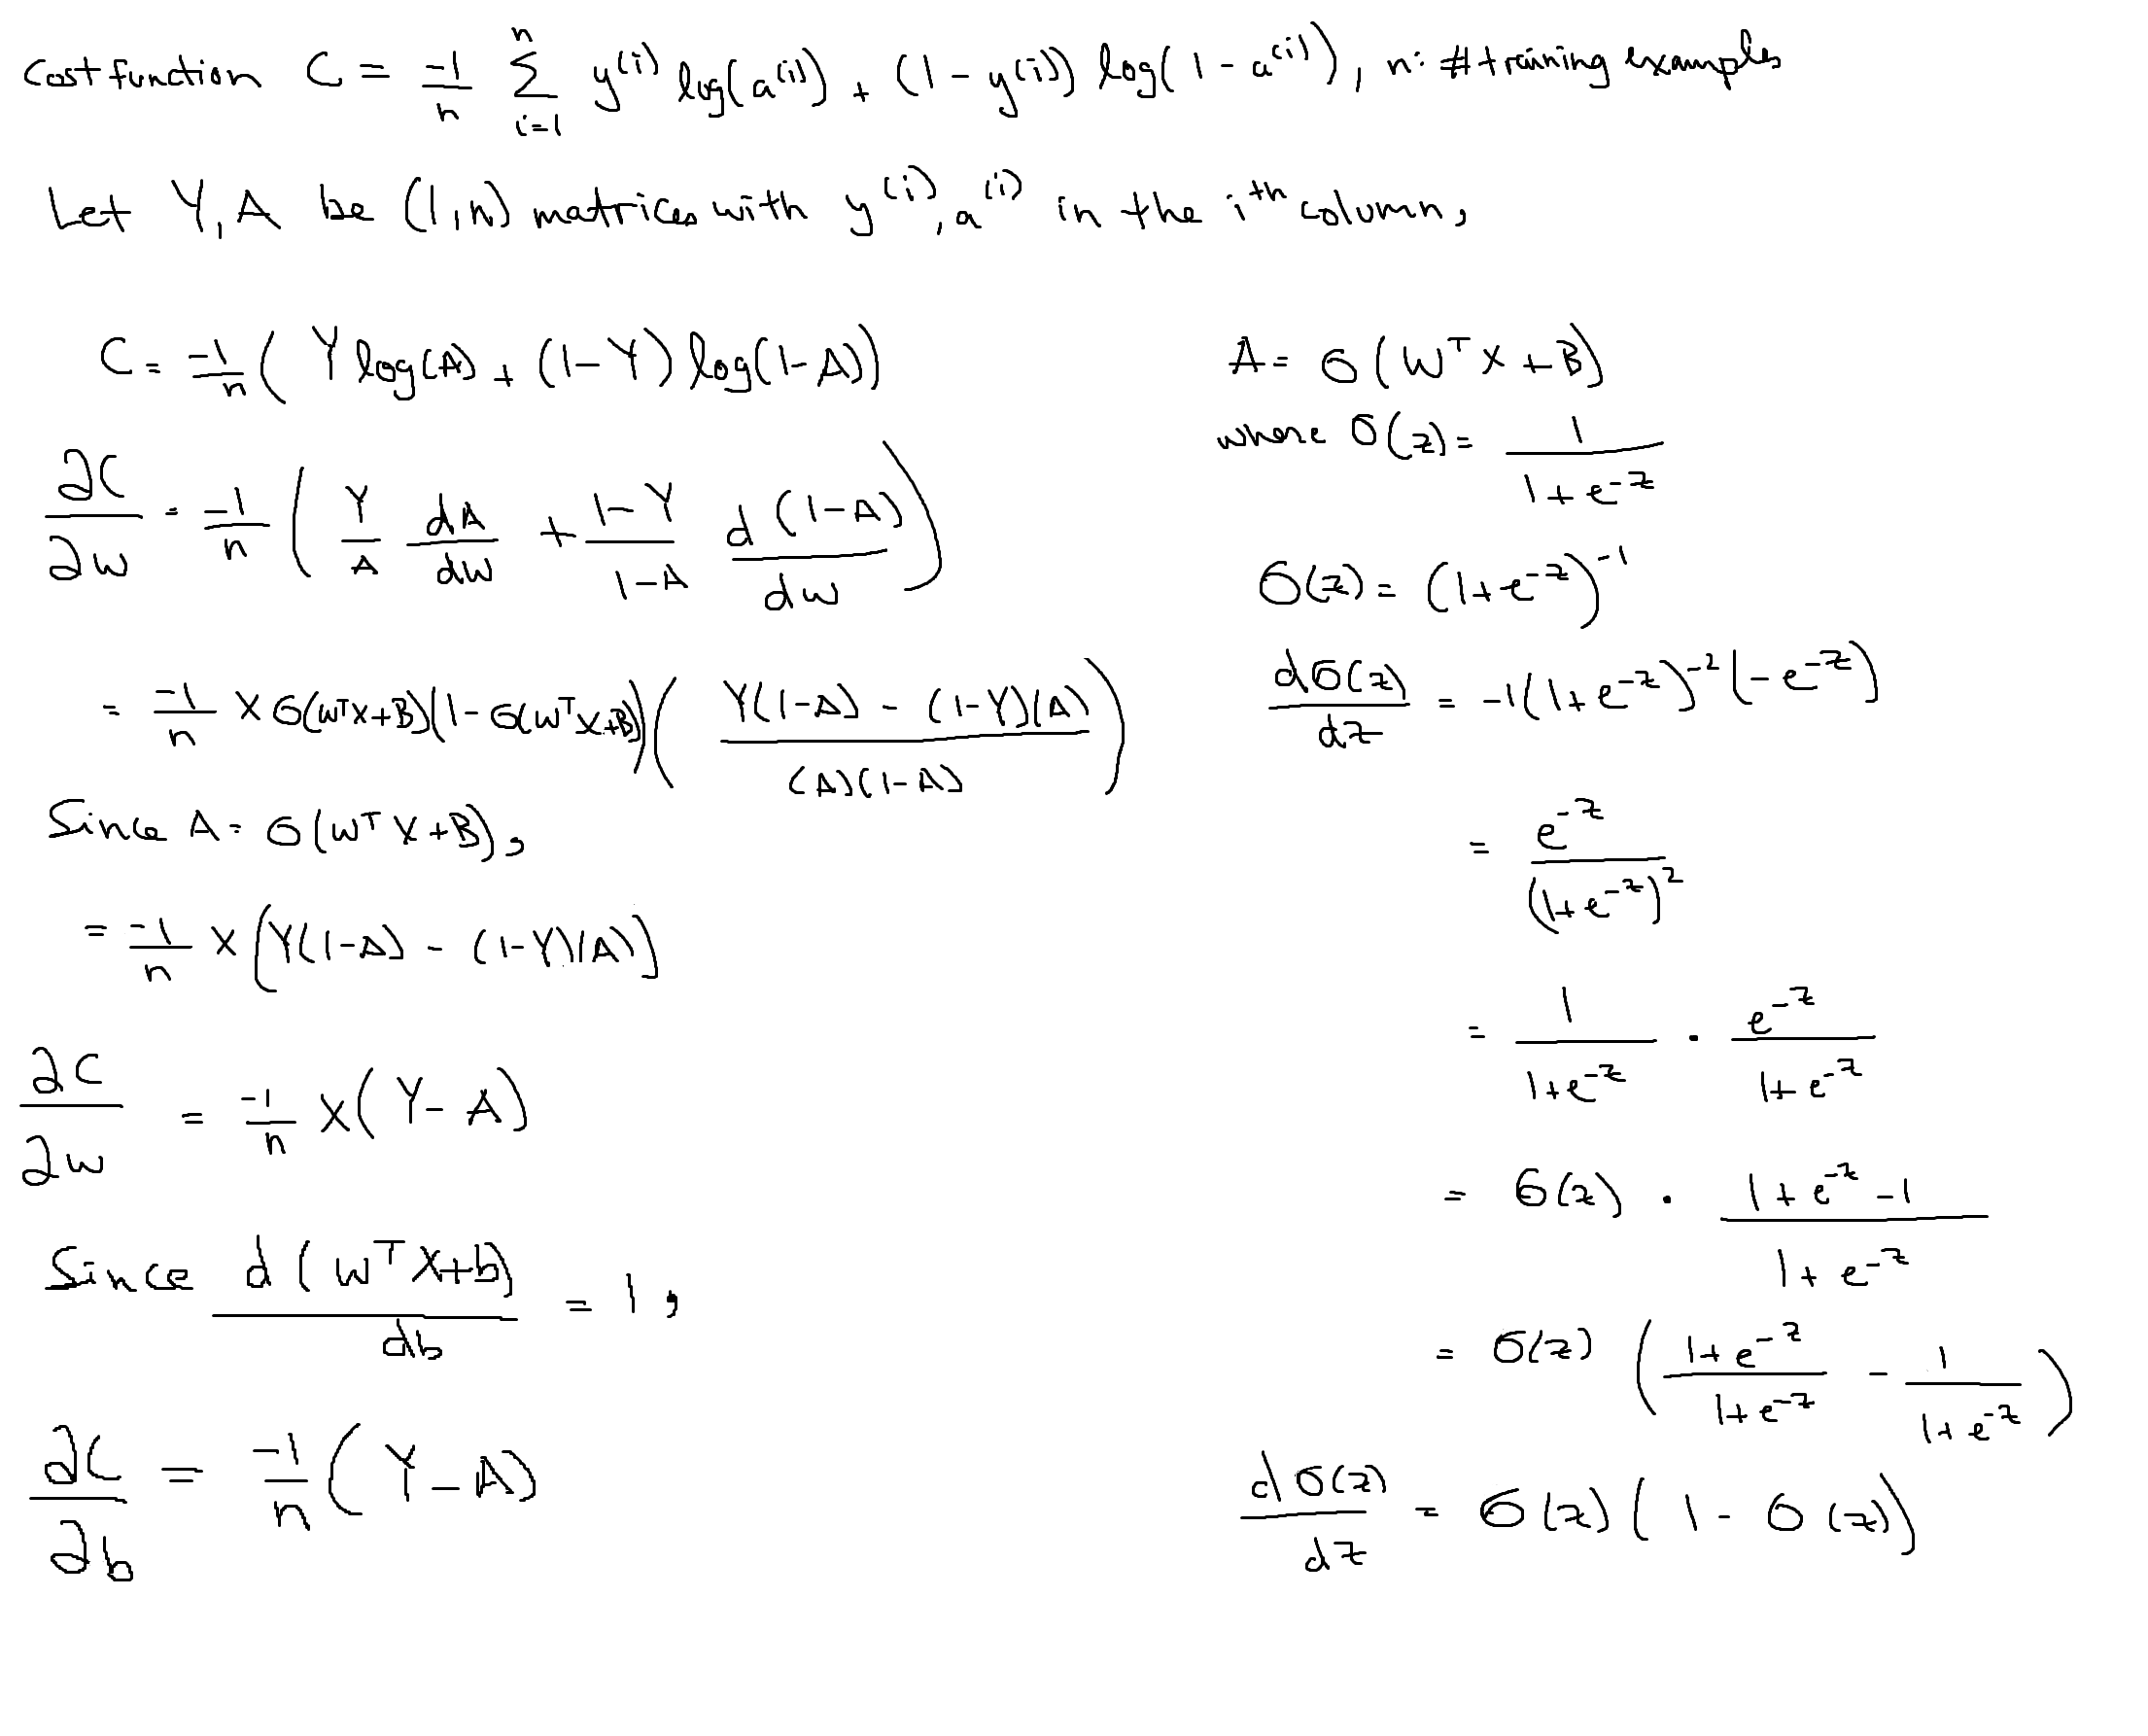 Cost function C = -1/n Σ_{i=1}^{n} y^(i) log(a^(i)) + (1 - y^(i)) log(1 - a^(i)), n: # training examples
Let Y, A be (1,n) matrices with y^(i), a^(i) in the i^th column,
C = -1/n ( Y log(A) + (1-Y) log(1-A))
∂C/∂w = -1/n ( Y/A dA/dw + 1-Y/1-A d(1-A)/dw )
= -1/n X σ(w^T X+B)(1- σ(w^T X+B)) ( Y(1-A) - (1-Y)(A) / (A)(1-A) )
Since A = σ(w^T X+B),
= -1/n X (Y(1-A) - (1-Y)(A))
∂C/∂w = -1/n X( Y-A)
Since d(w^T X+b)/db = 1,
∂C/∂b = -1/n ( Y-A)
A = σ(w^T X +B)
where σ(z) = 1/1+e^-z
σ(z) = (1+e^-z)^-1
dσ(z)/dz = -1(1+e^-z)^-2(-e^-z)
= e^-z/(1+e^-z)^2
= 1/1+e^-z · e^-z/1+e^-z
= σ(z) · 1+e^-z -1/1+e^-z
= σ(z) ( 1+e^-z/1+e^-z - 1/1+e^-z )
dσ(z)/dz = σ(z)( 1- σ(z))